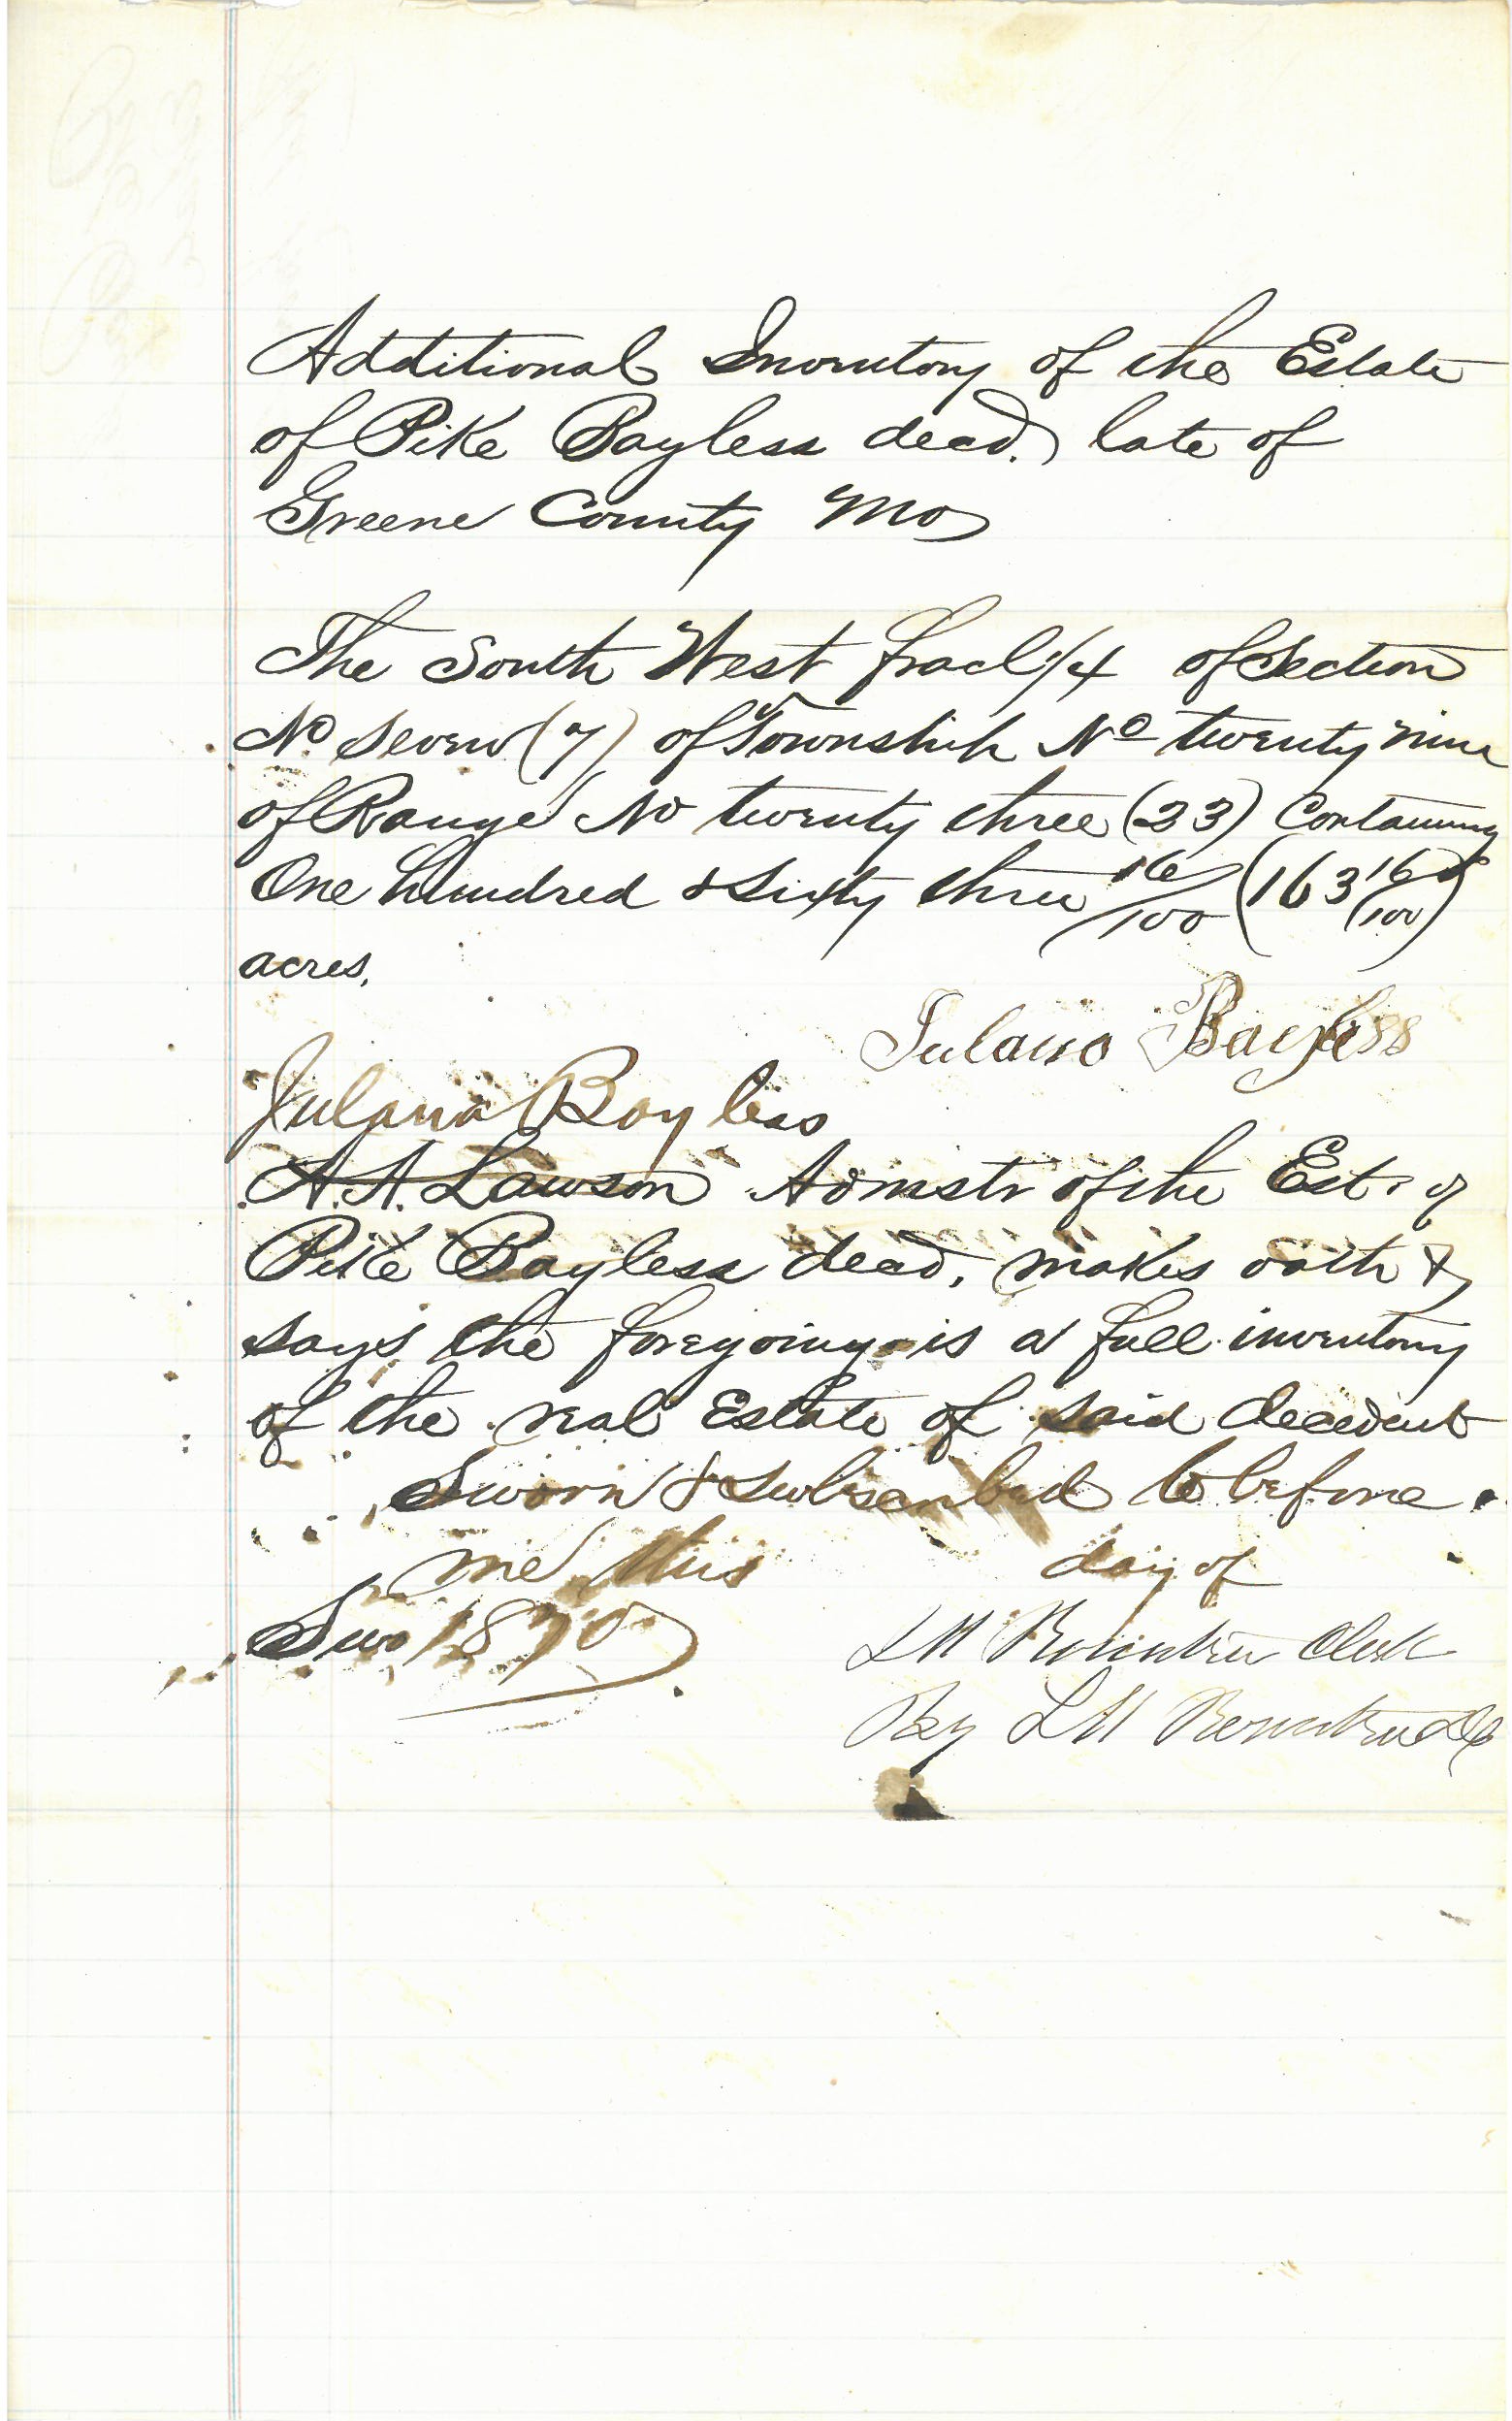 Additional Inventory of the Estate
of Pike Bayless decd. late of
Greene County Mo
The South West fracl 1/4 of Section
No Seven (7) of Township No twenty nine
of Range No twenty three (23) Containing
One hundred & Sixty three 16/100 (163 16/100)
acres.
Bayless
Julana Bayless
A. A. Lawson Admstr of the Est. of
Pike Bayless decd, makes oath &
says the foregoing is a full inventory
of the real Estate of said decedent
Sworn & Subscribed to before
me this day of
1870
L M Rountree Clerk
By L M Rountree